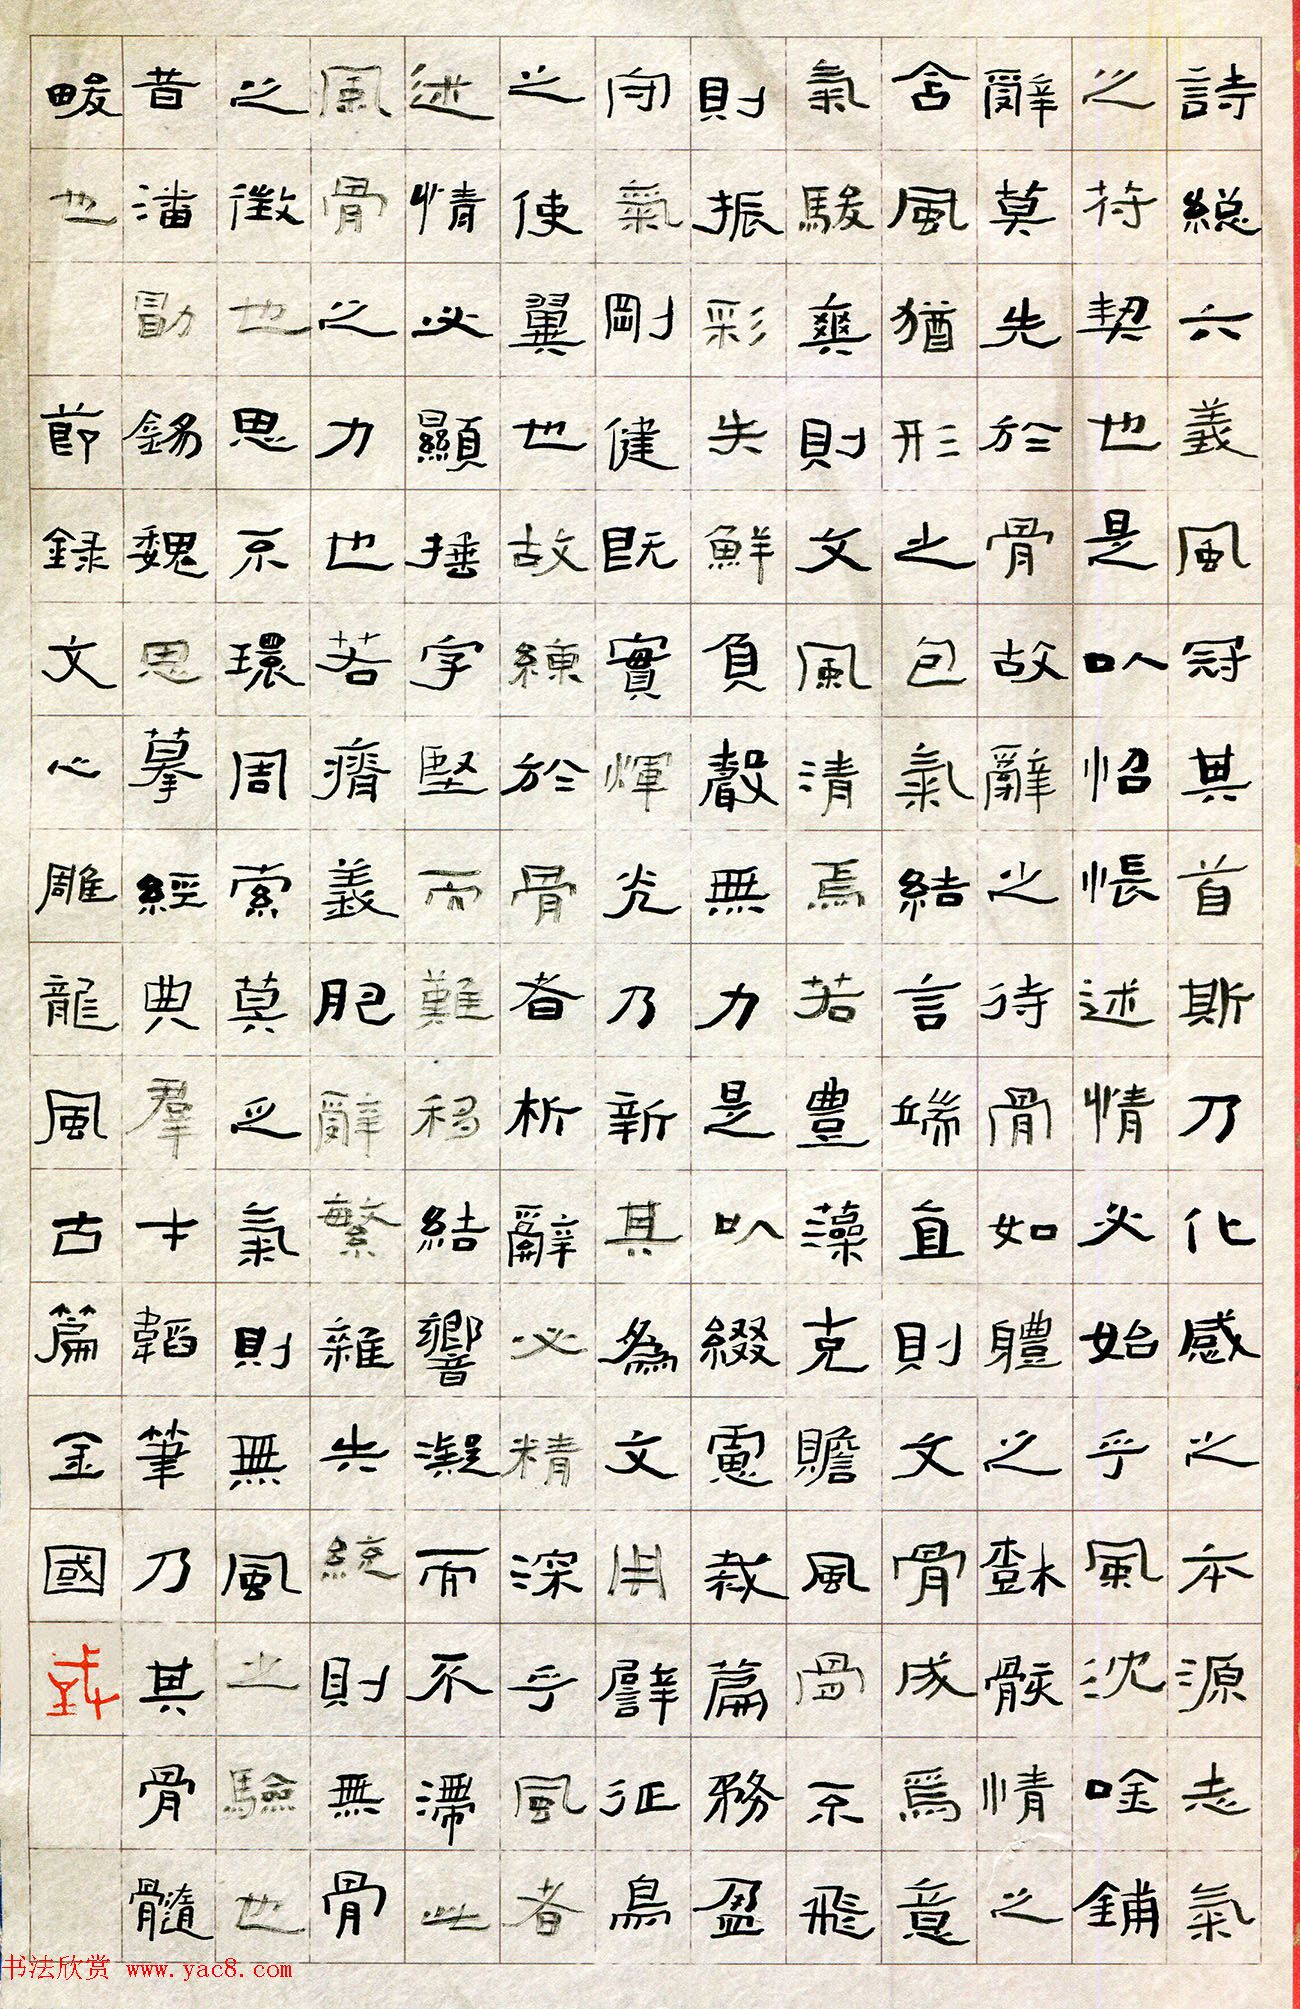 詩緫六義風冠其首斯乃化感之本源志氣
之符契也是以怊悵述情必始乎風沈唫鋪
辭莫先於骨故辭之待骨如體之樹骸情之
含風猶形之包氣結言端直則文骨成焉意
氣駿爽則文風清焉若豐藻克贍風骨不飛
則振彩失鮮負聲無力是以綴慮裁篇務盈
守氣剛健既實輝光乃新其為文用譬征鳥
之使翼也故練於骨者析辭必精深乎風者
述情必顯捶字堅而難移結響凝而不滯此
風骨之力也若瘠義肥辭繁雜失統則無骨
之徵也思不環周索莫乏氣則無風之驗也
昔潘勗錫魏思摹經典羣才韜筆乃其骨髓
畯也
節録文心雕龍風古篇金國
书法欣赏 www.yac8.com